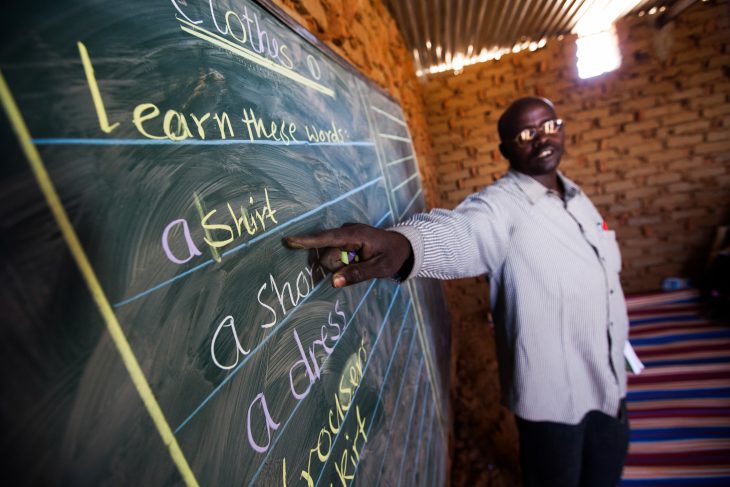 Clothes
Learn these words:
a shirt
a
a dress
trousers
skirt